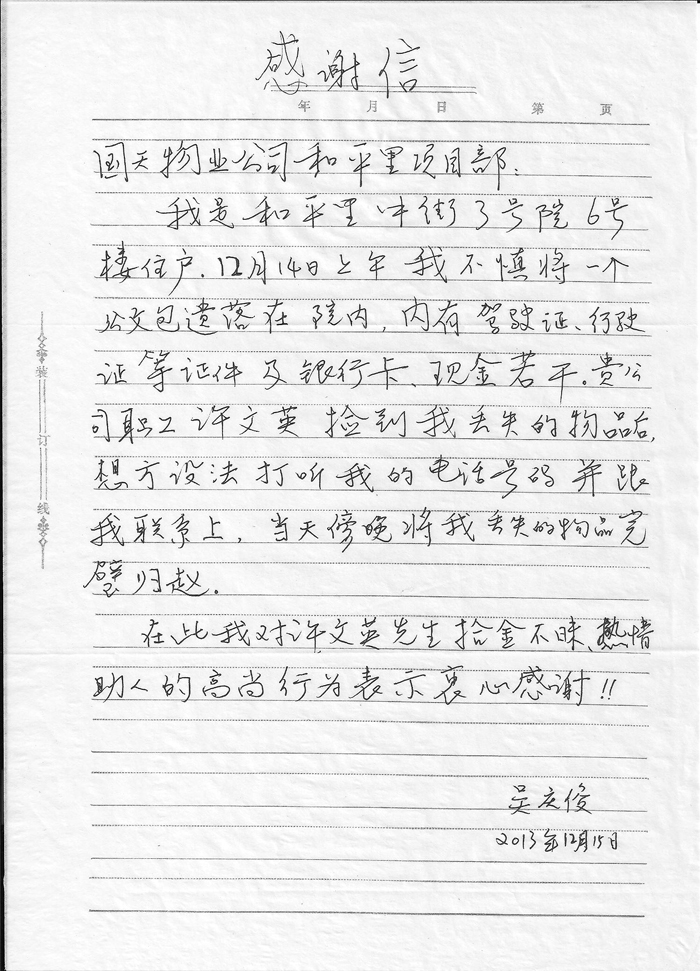 感谢信
年 月 日 第 页
国天物业公司和平里项目部:
我是和平里中街3号院6号
楼住户.12月14日上午我不慎将一个
公文包遗落在院内,内有驾驶证、行驶
证等证件及银行卡、现金若干.贵公
司职工许文英捡到我丢失的物品后,
想方设法打听我的电话号码并跟
我联系上,当天傍晚将我丢失的物品完
璧归赵.
在此我对许文英先生拾金不昧、热情
助人的高尚行为表示衷心感谢!!
吴庆俊
2013年12月15日
装订线